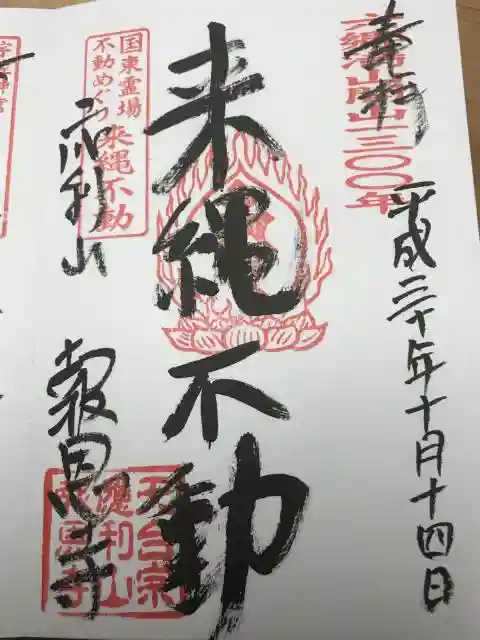 奉拝
六郷満山開山一三〇〇年
平成三十年十月十四日
来縄不動
国東霊場
不動めぐり 来縄不動
応利山
報恩寺
天台宗
應利山
報恩寺